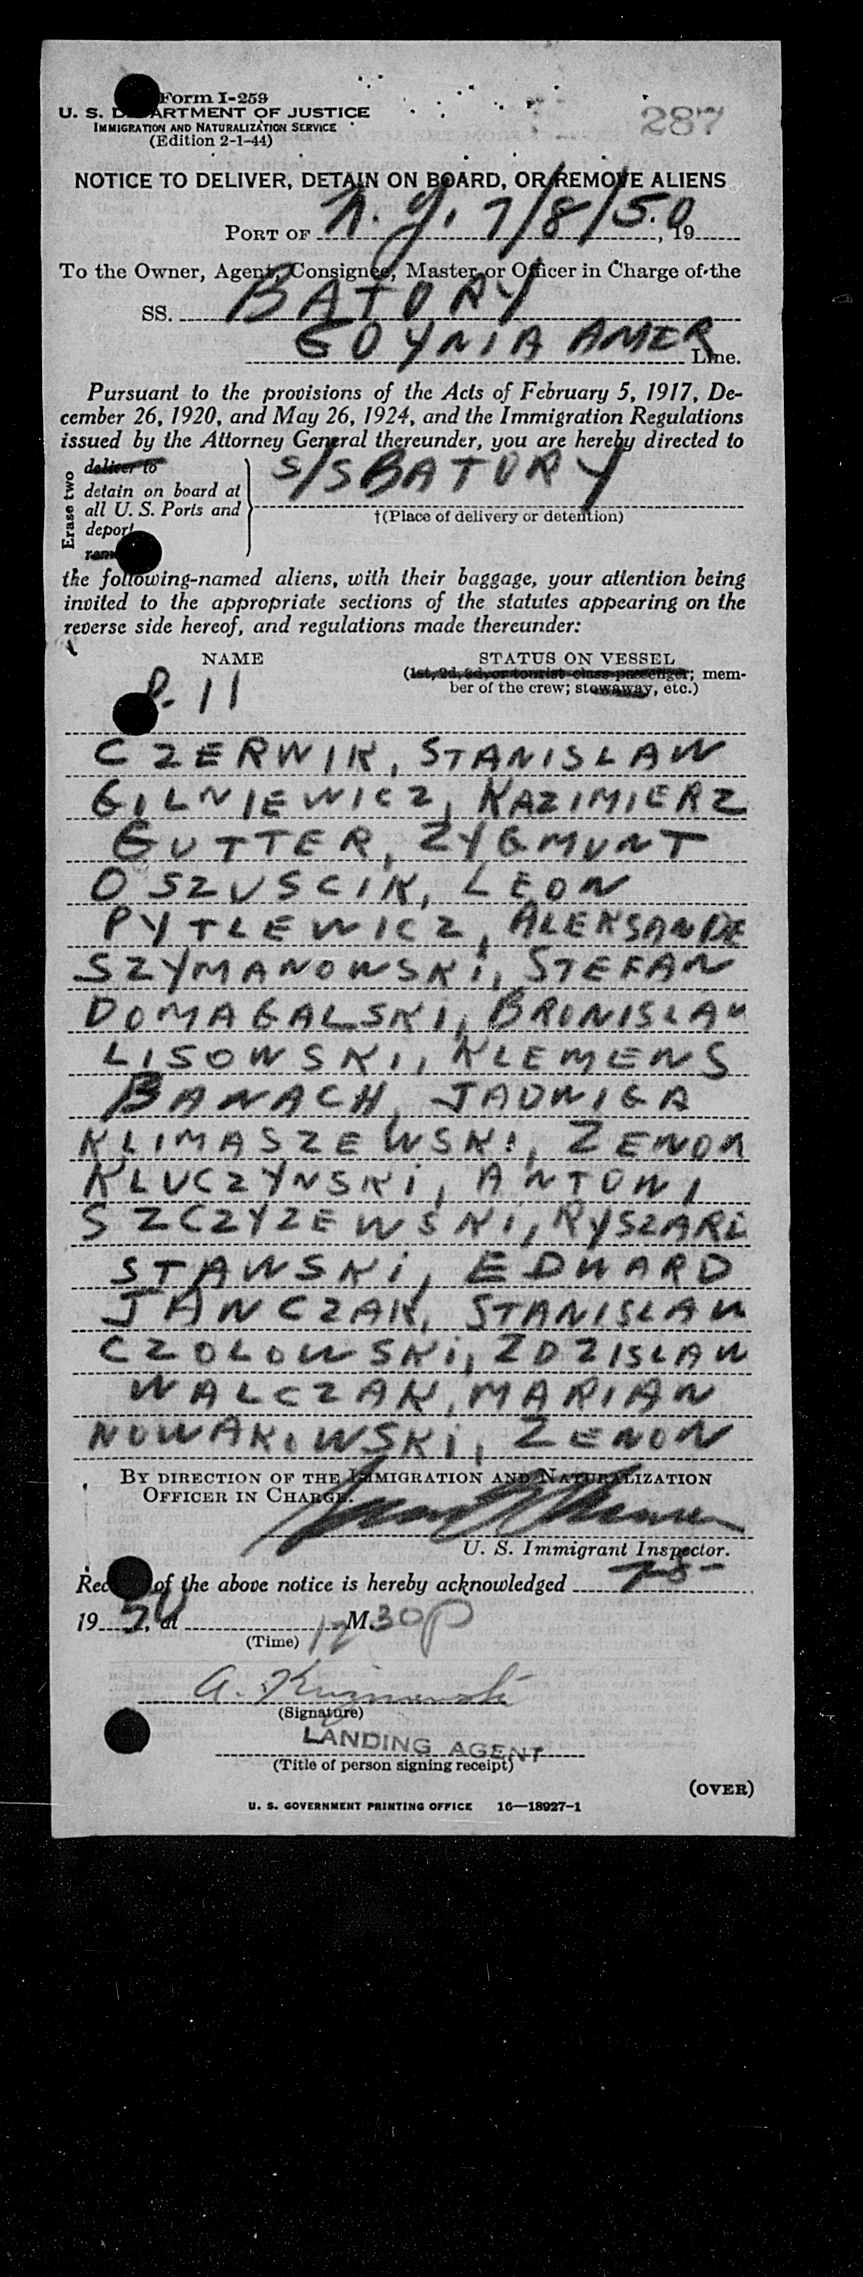 Form I-259
287
U. S. DEPARTMENT OF JUSTICE
IMMIGRATION AND NATURALIZATION SERVICE
(Edition 2-1-44)
NOTICE TO DELIVER, DETAIN ON BOARD, OR REMOVE ALIENS
PORT OF N. Y. 7/8/50, 19
To the Owner, Agent, Consignee, Master or Officer in Charge of the
SS. BATORY
GDYNIA AMER Line.
Pursuant to the provisions of the Acts of February 5, 1917, De-
cember 26, 1920, and May 26, 1924, and the Immigration Regulations
issued by the Attorney General thereunder, you are hereby directed to
Erase two
deliver to
detain on board at
all U. S. Ports and
deport
S/S BATORY
†(Place of delivery or detention)
the following-named aliens, with their baggage, your attention being
invited to the appropriate sections of the statutes appearing on the
reverse side hereof, and regulations made thereunder:
NAME
STATUS ON VESSEL
(1st, 2d, 3d, or tourist class passenger; mem-
ber of the crew; stowaway, etc.)
P. 11
CZERWIK, STANISLAW
GILNIEWICZ, KAZIMIERZ
GUTTER, ZYGMUNT
OSZUSCIK, LEON
PYTLEWICZ, ALEKSANDE
SZYMANOWSKI, STEFAN
DOMAGALSKI, BRONISLAW
LISOWSKI, KLEMENS
BANACH, JADWIGA
KLIMASZEWSKI, ZENON
KLUCZYNSKI, ANTONI
SZCZYZEWSKI, RYSZARD
STAWSKI, EDWARD
JANCZAK, STANISLAW
CZOLOWSKI, ZDZISLAW
WALCZAK, MARIAN
NOWAKOWSKI, ZENON
BY DIRECTION OF THE IMMIGRATION AND NATURALIZATION
OFFICER IN CHARGE.
U. S. Immigrant Inspector.
Rec of the above notice is hereby acknowledged 7-8-
1950, at 12 M. 30 P
(Time)
(Signature)
LANDING AGENT
(Title of person signing receipt)
(OVER)
U. S. GOVERNMENT PRINTING OFFICE 16—18927-1